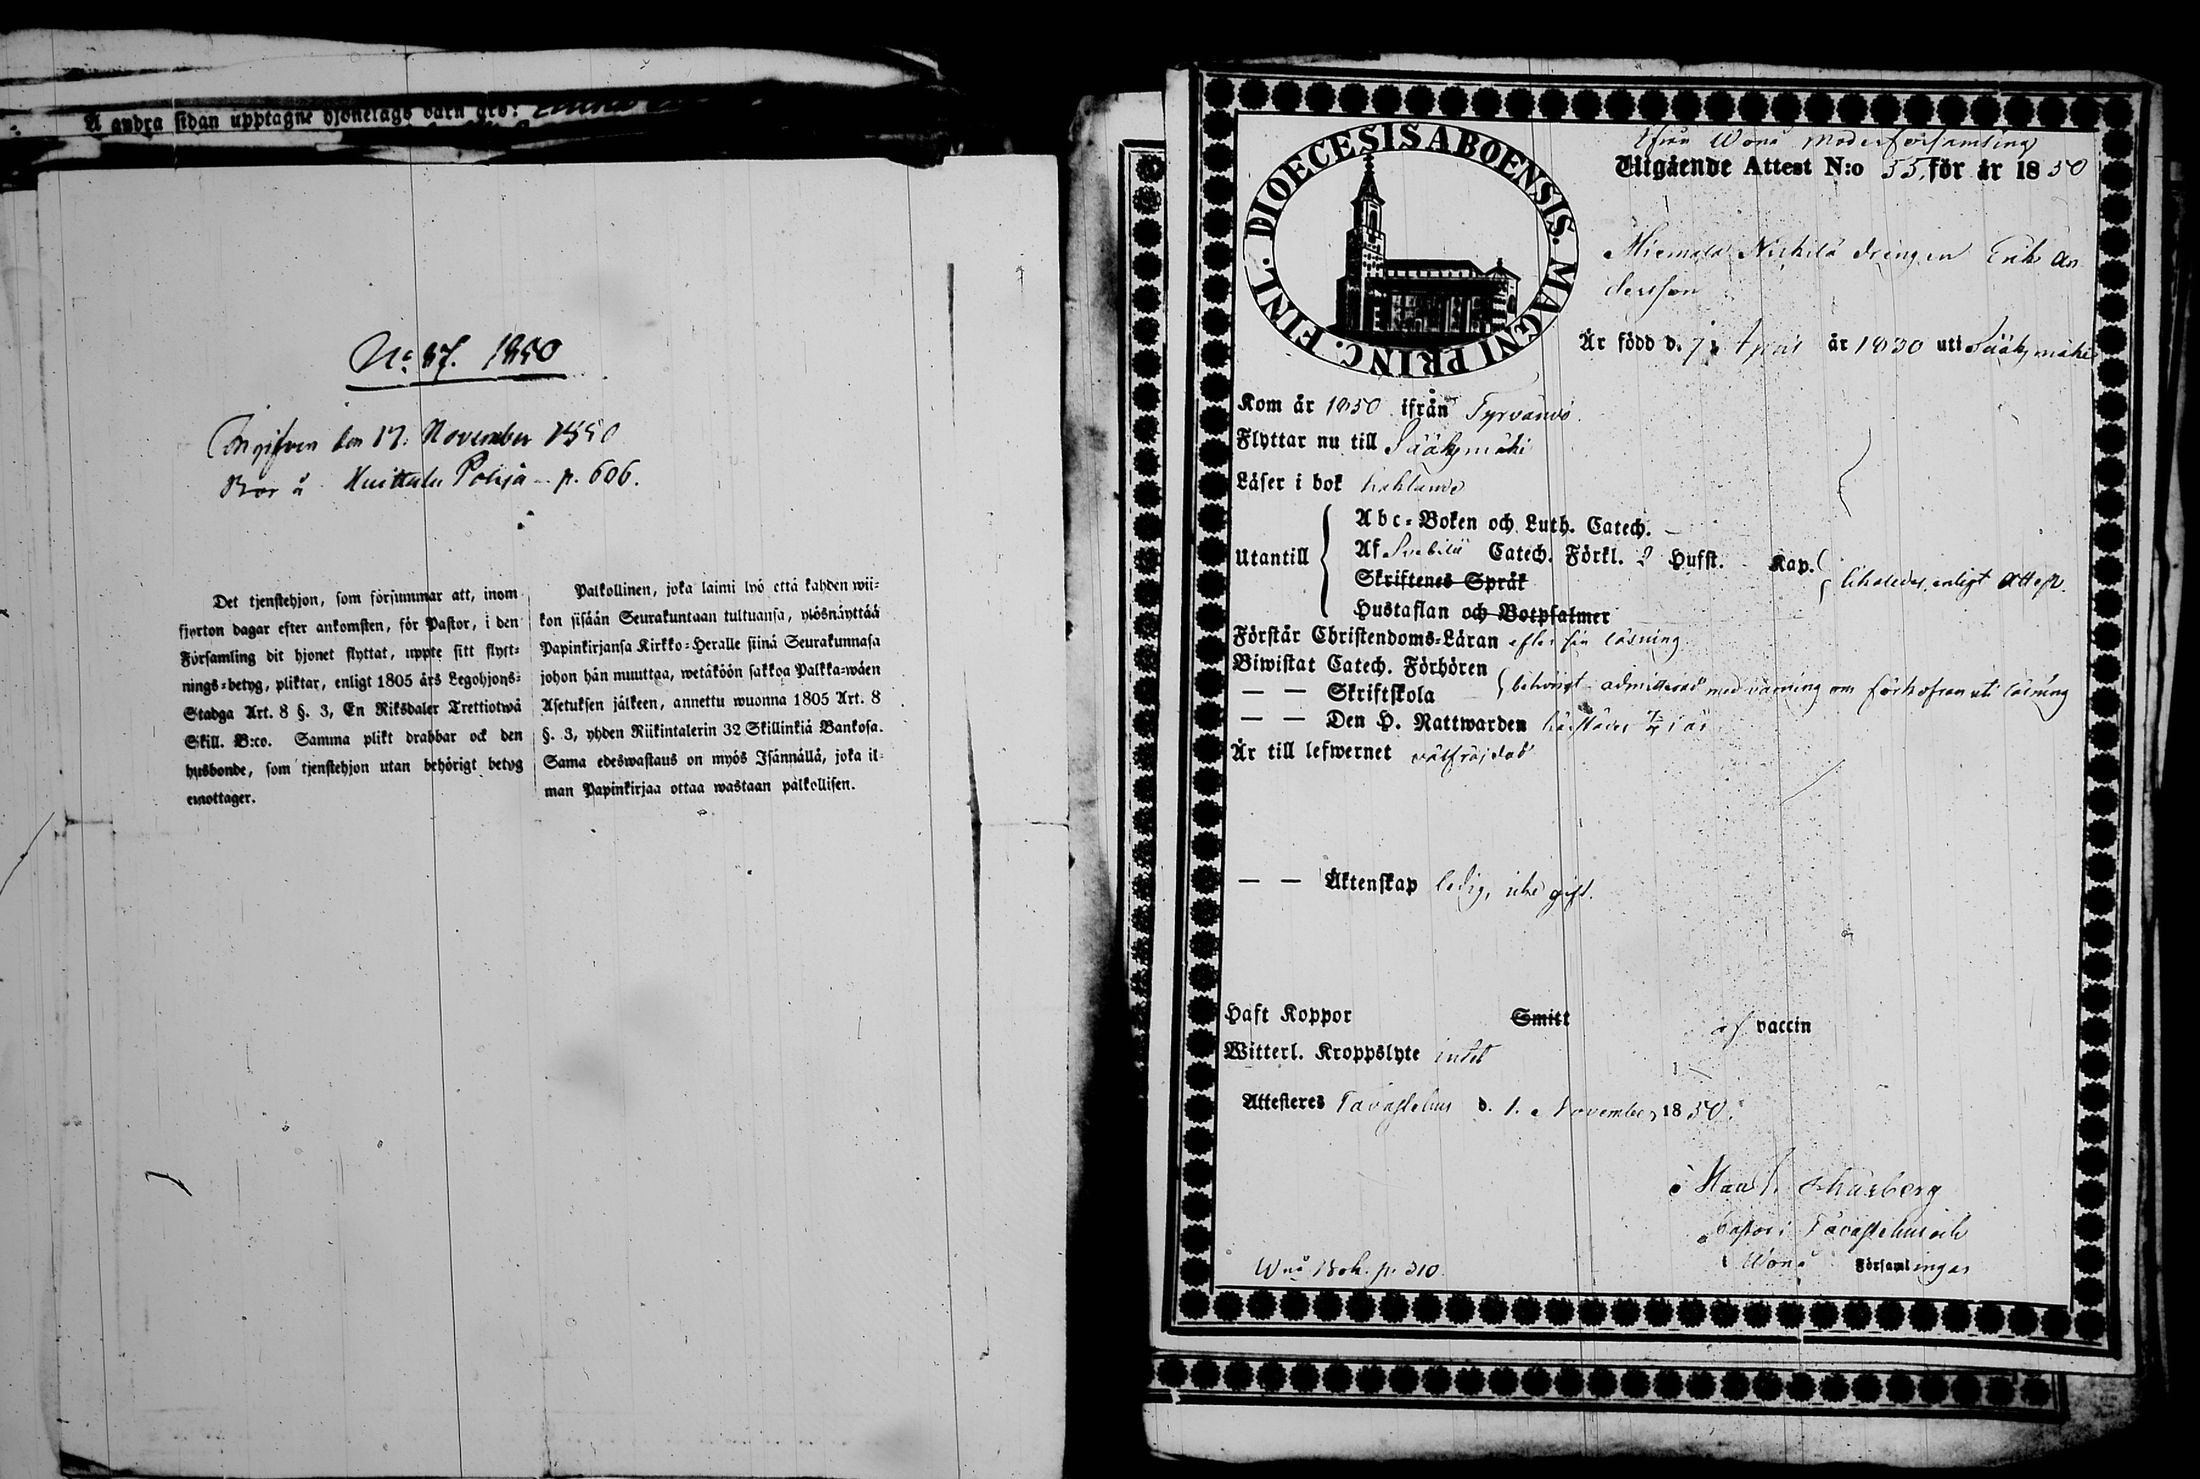 Å andra sidan upptagne hjonelags barn äro:
N:o 87. 1850
den 17. November 1850
Bor å Huittula Pohja p. 606.
Det tjenstehjon, som försummar att, inom
fjorton dagar efter ankomsten, för Pastor, i den
Församling dit hjonet flyttat, uppte sitt flytt-
nings-betyg, pliktar, enligt 1805 års Legohjons-
Stadga Art. 8 §. 3, En Riksdaler Trettiotwå
Skill. B:co. Samma plikt drabbar ock den
husbonde, som tjenstehjon utan behörigt betyg
emottager.
Palkollinen, joka laimi lyö että kahden wii-
kon sisään Seurakuntaan tultuansa, ylösnäyttää
Papinkirjansa Kirkko-Heralle siinä Seurakunnasa
johon hän muuttaa, wetäköön sakkoa Palkka-wäen
Asetuksen jälkeen, annettu wuonna 1805 Art. 8
§. 3, yhden Riikintalerin 32 Skillinkiä Bankosa.
Sama edeswastaus on myös Isännällä, joka il-
man Papinkirjaa ottaa wastaan palkollisen.
DIOECESIS ABOENSIS. MAGNI PRINC. FINL.
ifrån Wånå Moderförsamling
Utgående Attest N:o 55. för år 1850
Miemala Nickilä drengen Erik An
dersson
Är född d. 7 April år 1830 uti Sääksmäki
Kom år 1850 ifrån Tyrväntö
Flyttar nu till Sääksmäki
Läser i bok
Utantill
Abc-Boken och Luth. Catech.
Af Svebilii Catech. Förkl. 2 Hufst. Kap.
Skriftenes Språk
Hustaflan och Botpsalmer
likaledes, enligt Attest.
Förstår Christendoms-Läran efter sin läsning
Biwistat Catech. Förhören
— — Skriftskola
behörigt admitterad med varning om uti läsning
— — Den H. Nattwarden
Är till lefwernet välfräjdad
— — Äktenskap ledig, icke gift.
Haft Koppor Smitt af vaccin
Witterl. Kroppslyte intet
Attesteres Tavastehus d. 1. November 1850.
Pastor i Tavastehus och
Wånå Församlingar
Wnå Bok. p. 310